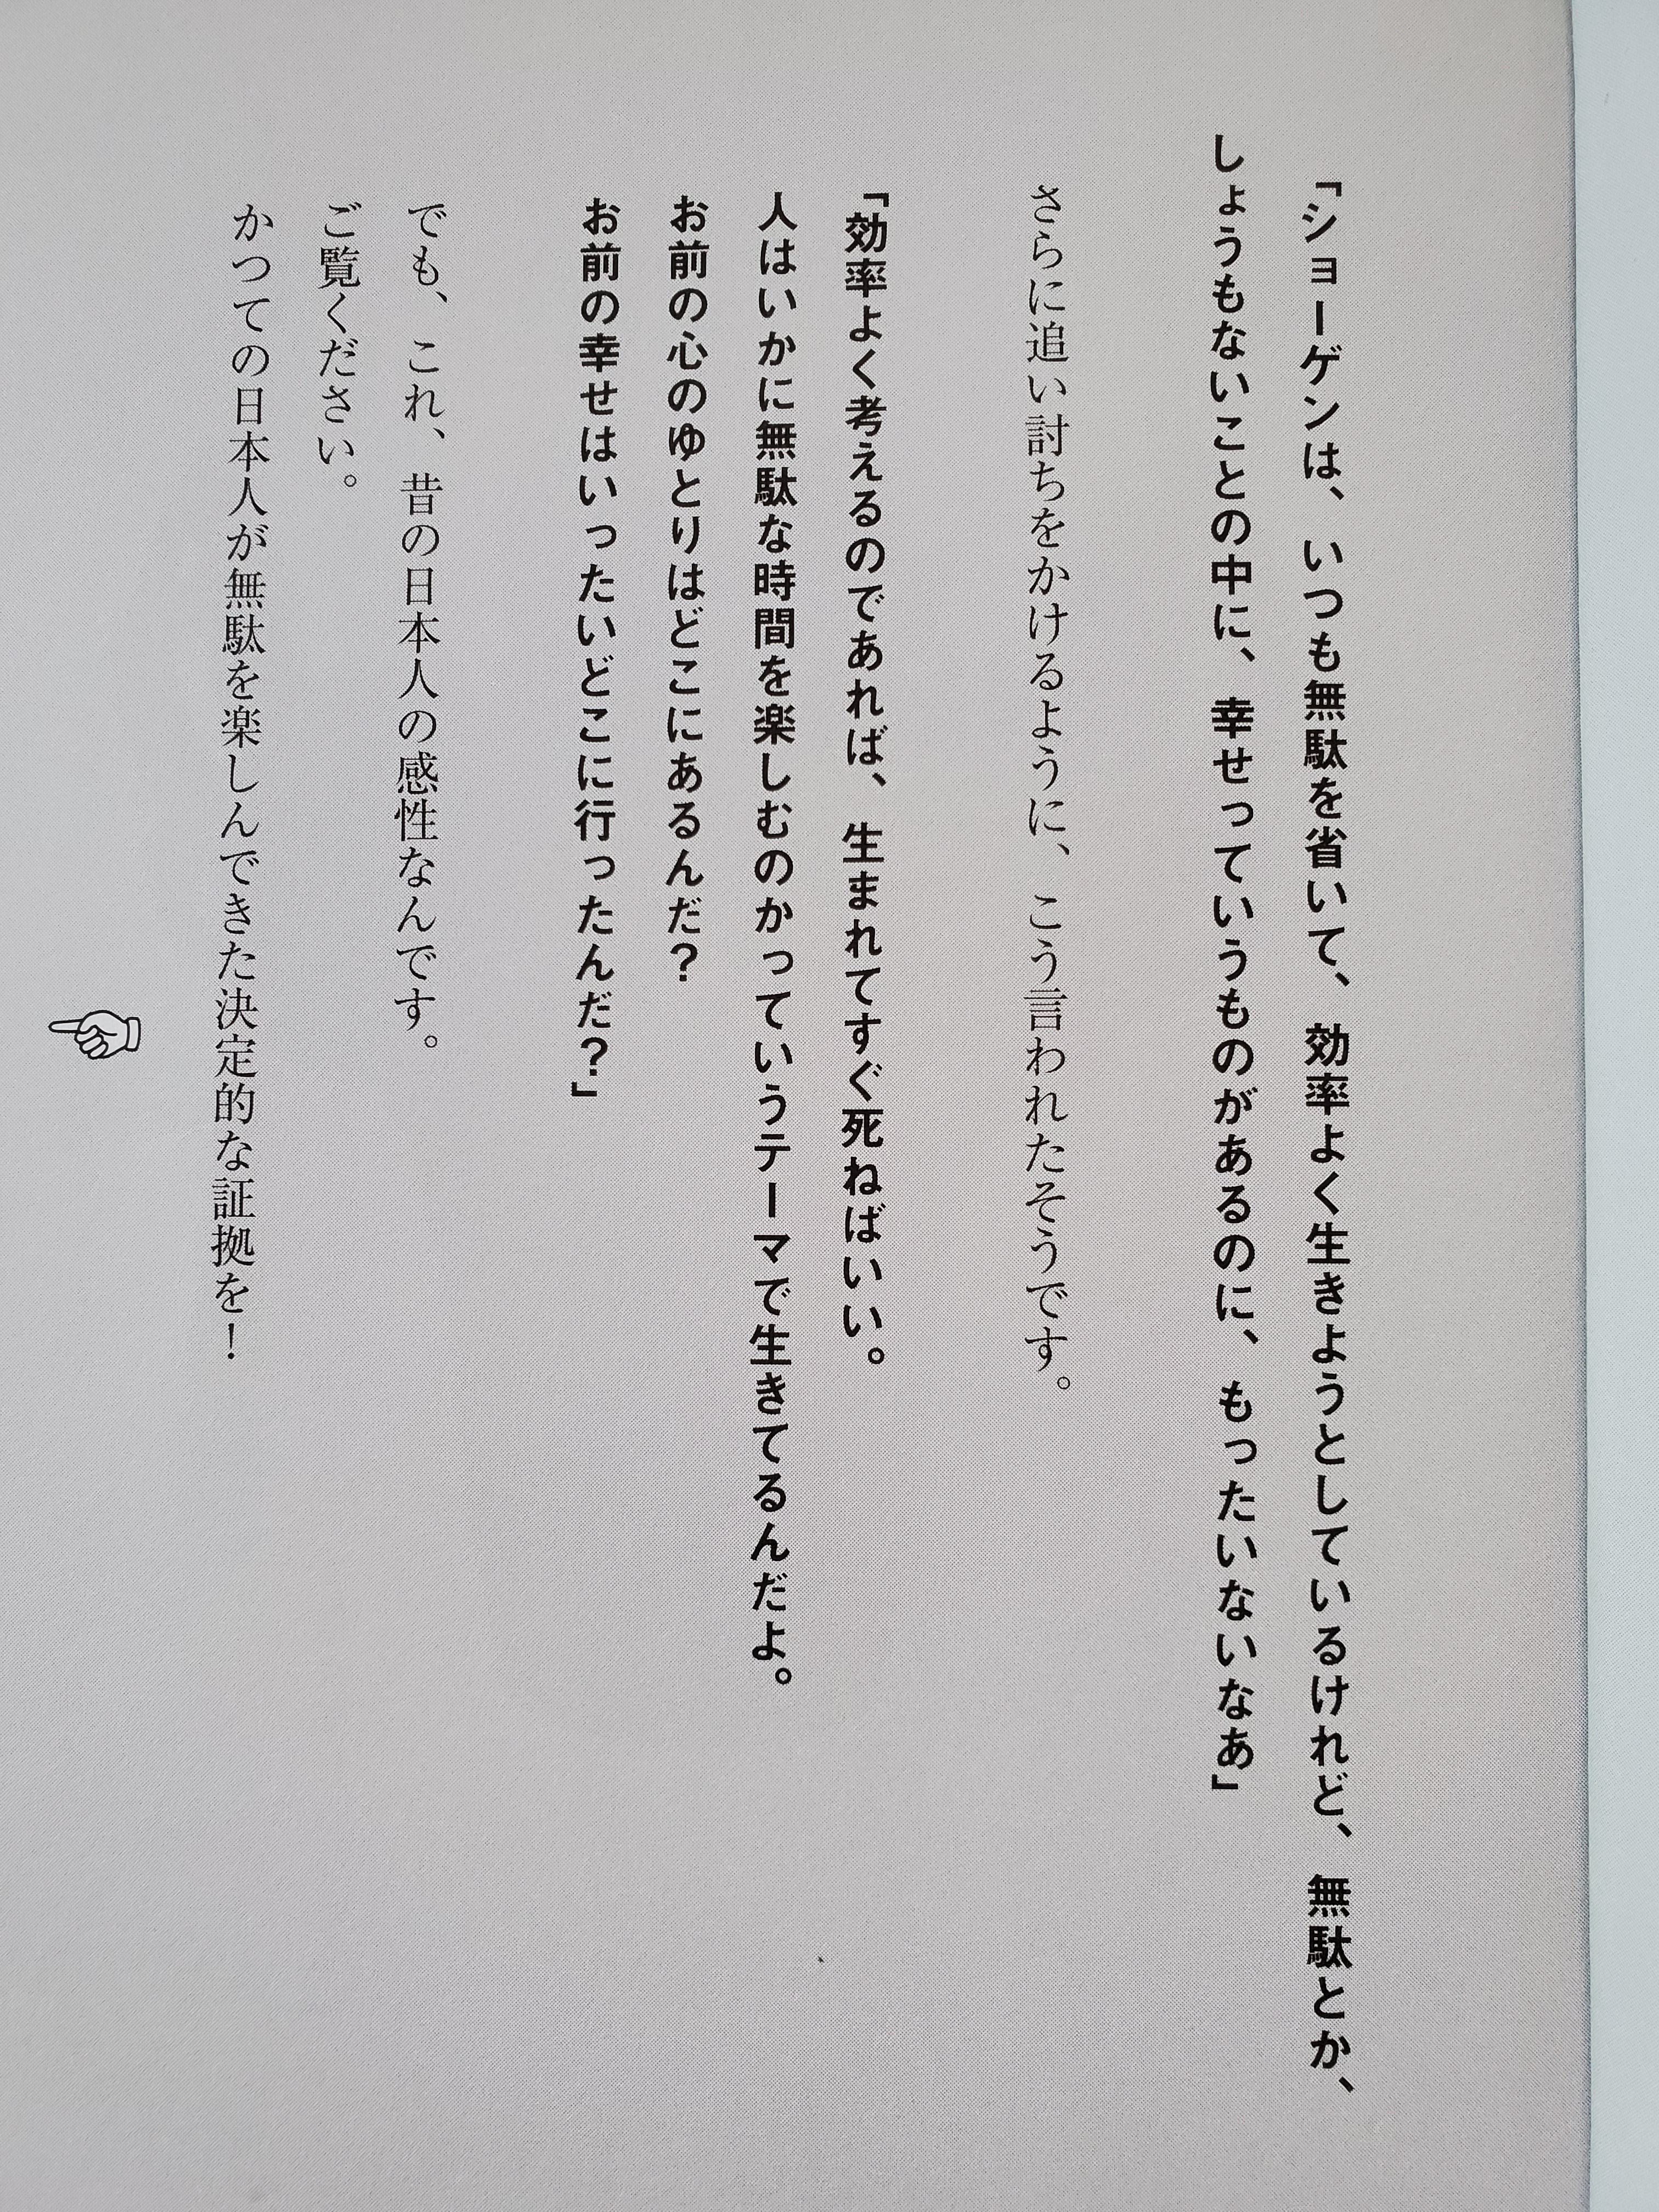 「ショーゲンは、いつも無駄を省いて、効率よく生きようとしているけれど、無駄とか、
しょうもないことの中に、幸せっていうものがあるのに、もったいないなあ」
さらに追い討ちをかけるように、こう言われたそうです。
「効率よく考えるのであれば、生まれてすぐ死ねばいい。
人はいかに無駄な時間を楽しむのかっていうテーマで生きてるんだよ。
お前の心のゆとりはどこにあるんだ？
お前の幸せはいったいどこに行ったんだ？」
でも、これ、昔の日本人の感性なんです。
ご覧ください。
かつての日本人が無駄を楽しんできた決定的な証拠を！